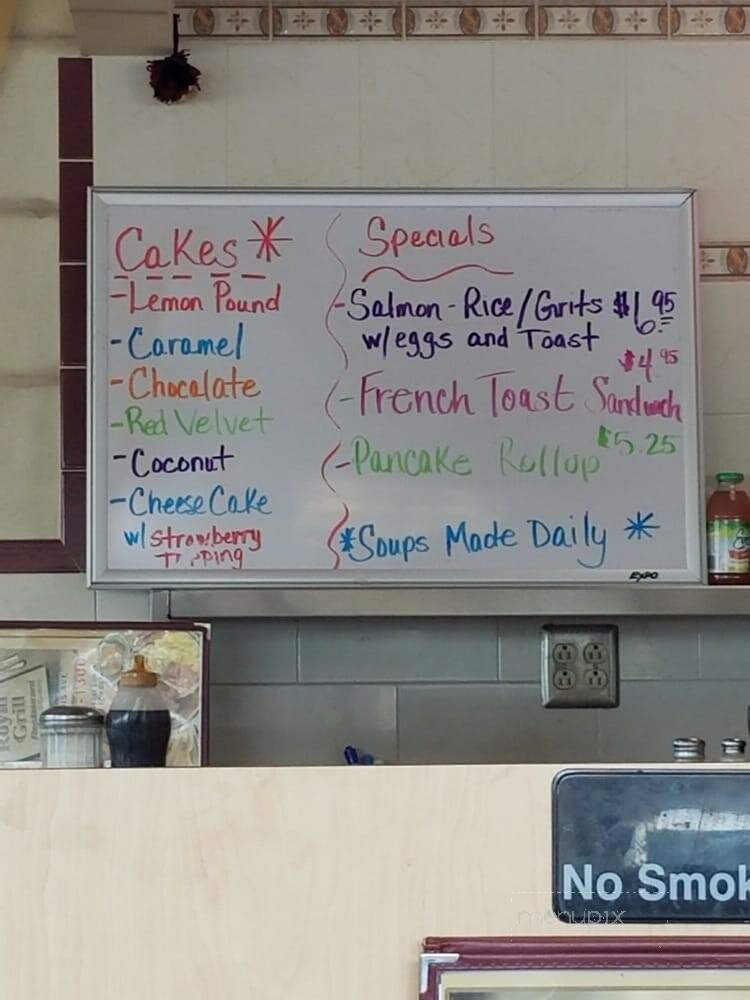 Cakes *
-Lemon Pound
-Caramel
-Chocolate
-Red Velvet
-Coconut
-Cheese Cake
w/ strawberry
Topping
Specials
-Salmon - Rice/Grits $16.95
w/eggs and Toast
$4.95
-French Toast Sandwich
$5.25
-Pancake Rollup
*Soups Made Daily *
EXPO
Grill
No Smok
menupix